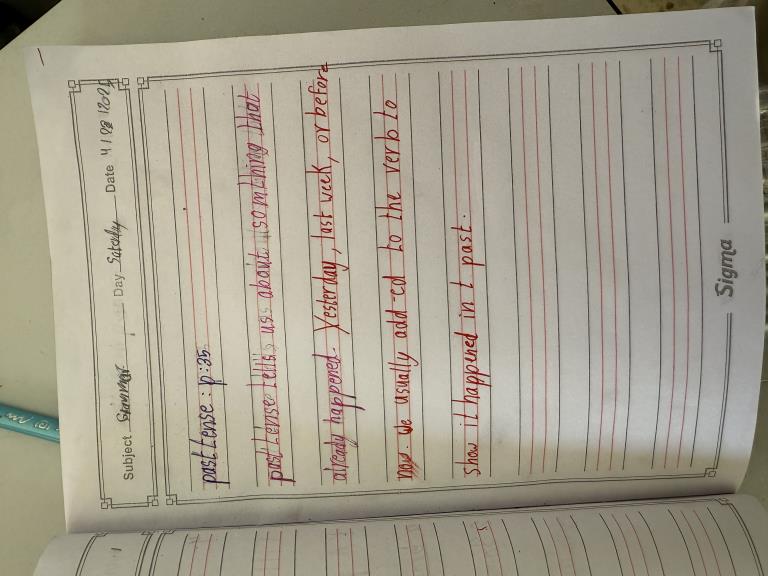 Subject Grammar Day Saterday Date 4/08/2025
past tense : p:35
past tense tells us about somthing that
already happened. Yesterday, last week, or before
now. We usually add -ed to the verb to
show it happened in t past.
Sigma